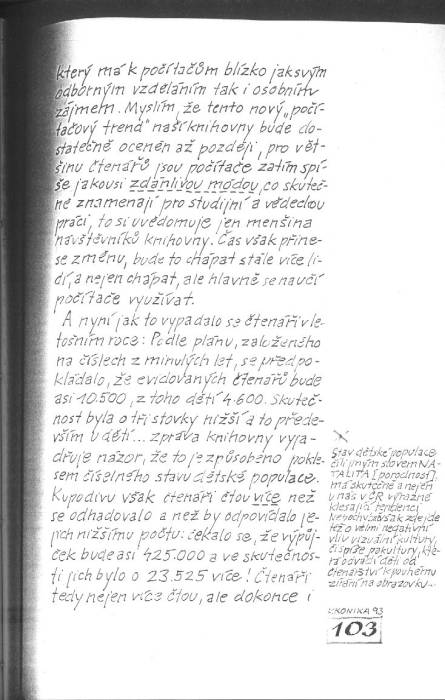 který má k počítačům blízko jak svým
odborným vzděláním tak i osobním
zájmem. Myslím, že tento nový „počí-
tačový trend" naší knihovny bude do-
statečně oceněn až později, pro vět-
šinu čtenářů jsou počítače zatím spí-
še jakousi zdánlivou módou, co skuteč-
ně znamenají pro studijní a vědeckou
práci, to si uvědomuje jen menšina
návštěvníků knihovny. Čas však přine-
se změnu, bude to chápat stále více li-
dí, a nejen chápat, ale hlavně se naučí
počítače využívat.
A nyní jak to vypadalo se čtenáři v le-
tošním roce: Podle plánu, založeného
na číslech z minulých let, se předpo-
kládalo, že evidovaných čtenářů bude
asi 10.500, z toho dětí 4.600. Skuteč-
nost byla o tři stovky nižší a to přede-
vším u dětí... zpráva knihovny vyja-
dřuje názor, že to je způsobeno pokle-
sem číselného stavu dětské populace.
Kupodivu však čtenáři čtou více než
se odhadovalo a než by odpovídalo je-
jich nižšímu počtu: čekalo se, že výpůj-
ček bude asi 425.000 a ve skutečnos-
ti jich bylo o 23.525 více! Čtenáři
tedy nejen více čtou, ale dokonce i
Stav dětské populace
čili jiným slovem NA-
TALITA [porodnost],
má skutečně a nejen
u nás v ČR výrazně
klesající tendenci.
však zde jde
též o velmi negativní
vliv vizuální kultury,
či spíše pakultury, kte-
rá odvádí děti od
čtenářství k pouhému
zírání na obrazovku...
KRONIKA 93
103